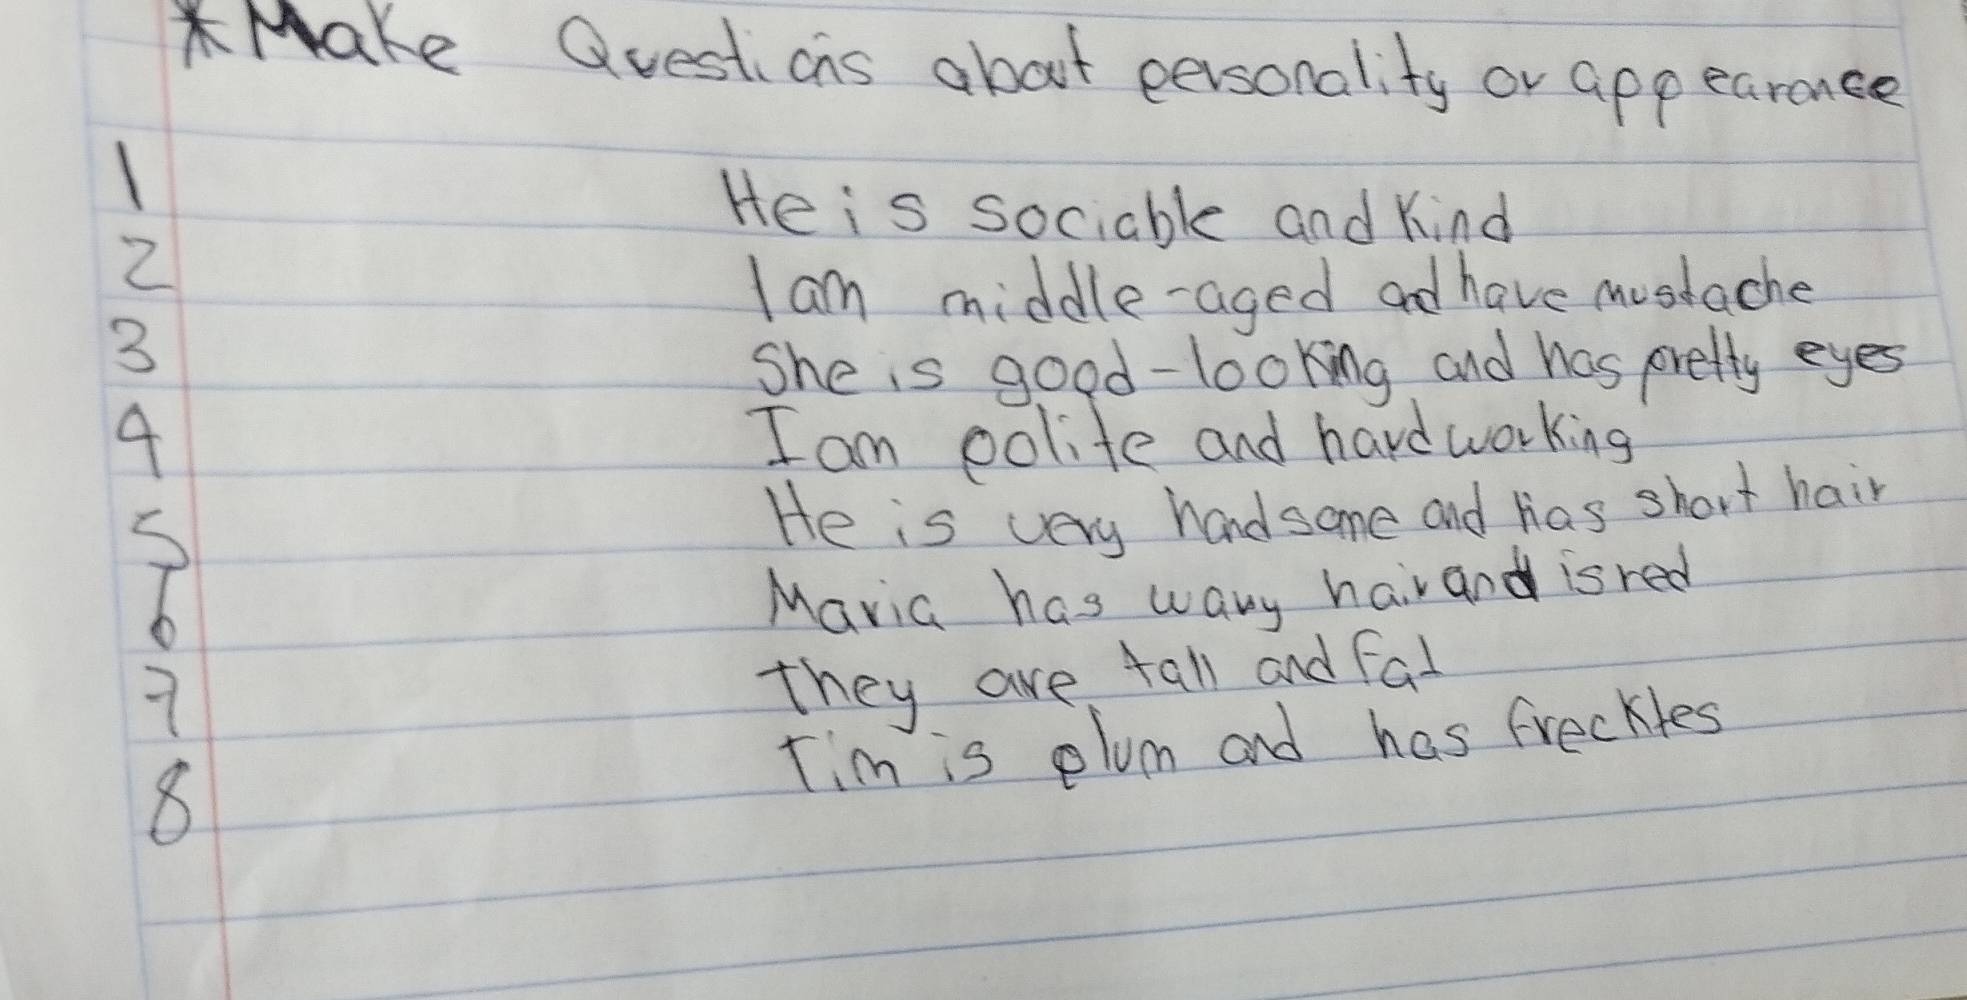 *Make Questions about personality or appearance
1 He is sociable and Kind
2 I am middle-aged and have mustache
3 She is good-looking and has pretty eyes
4 I am polite and hardworking
5 He is very handsome and has short hair
6 Maria has wavy hair and is red
7 they are tall and fat
8 Tim is plum and has freckles